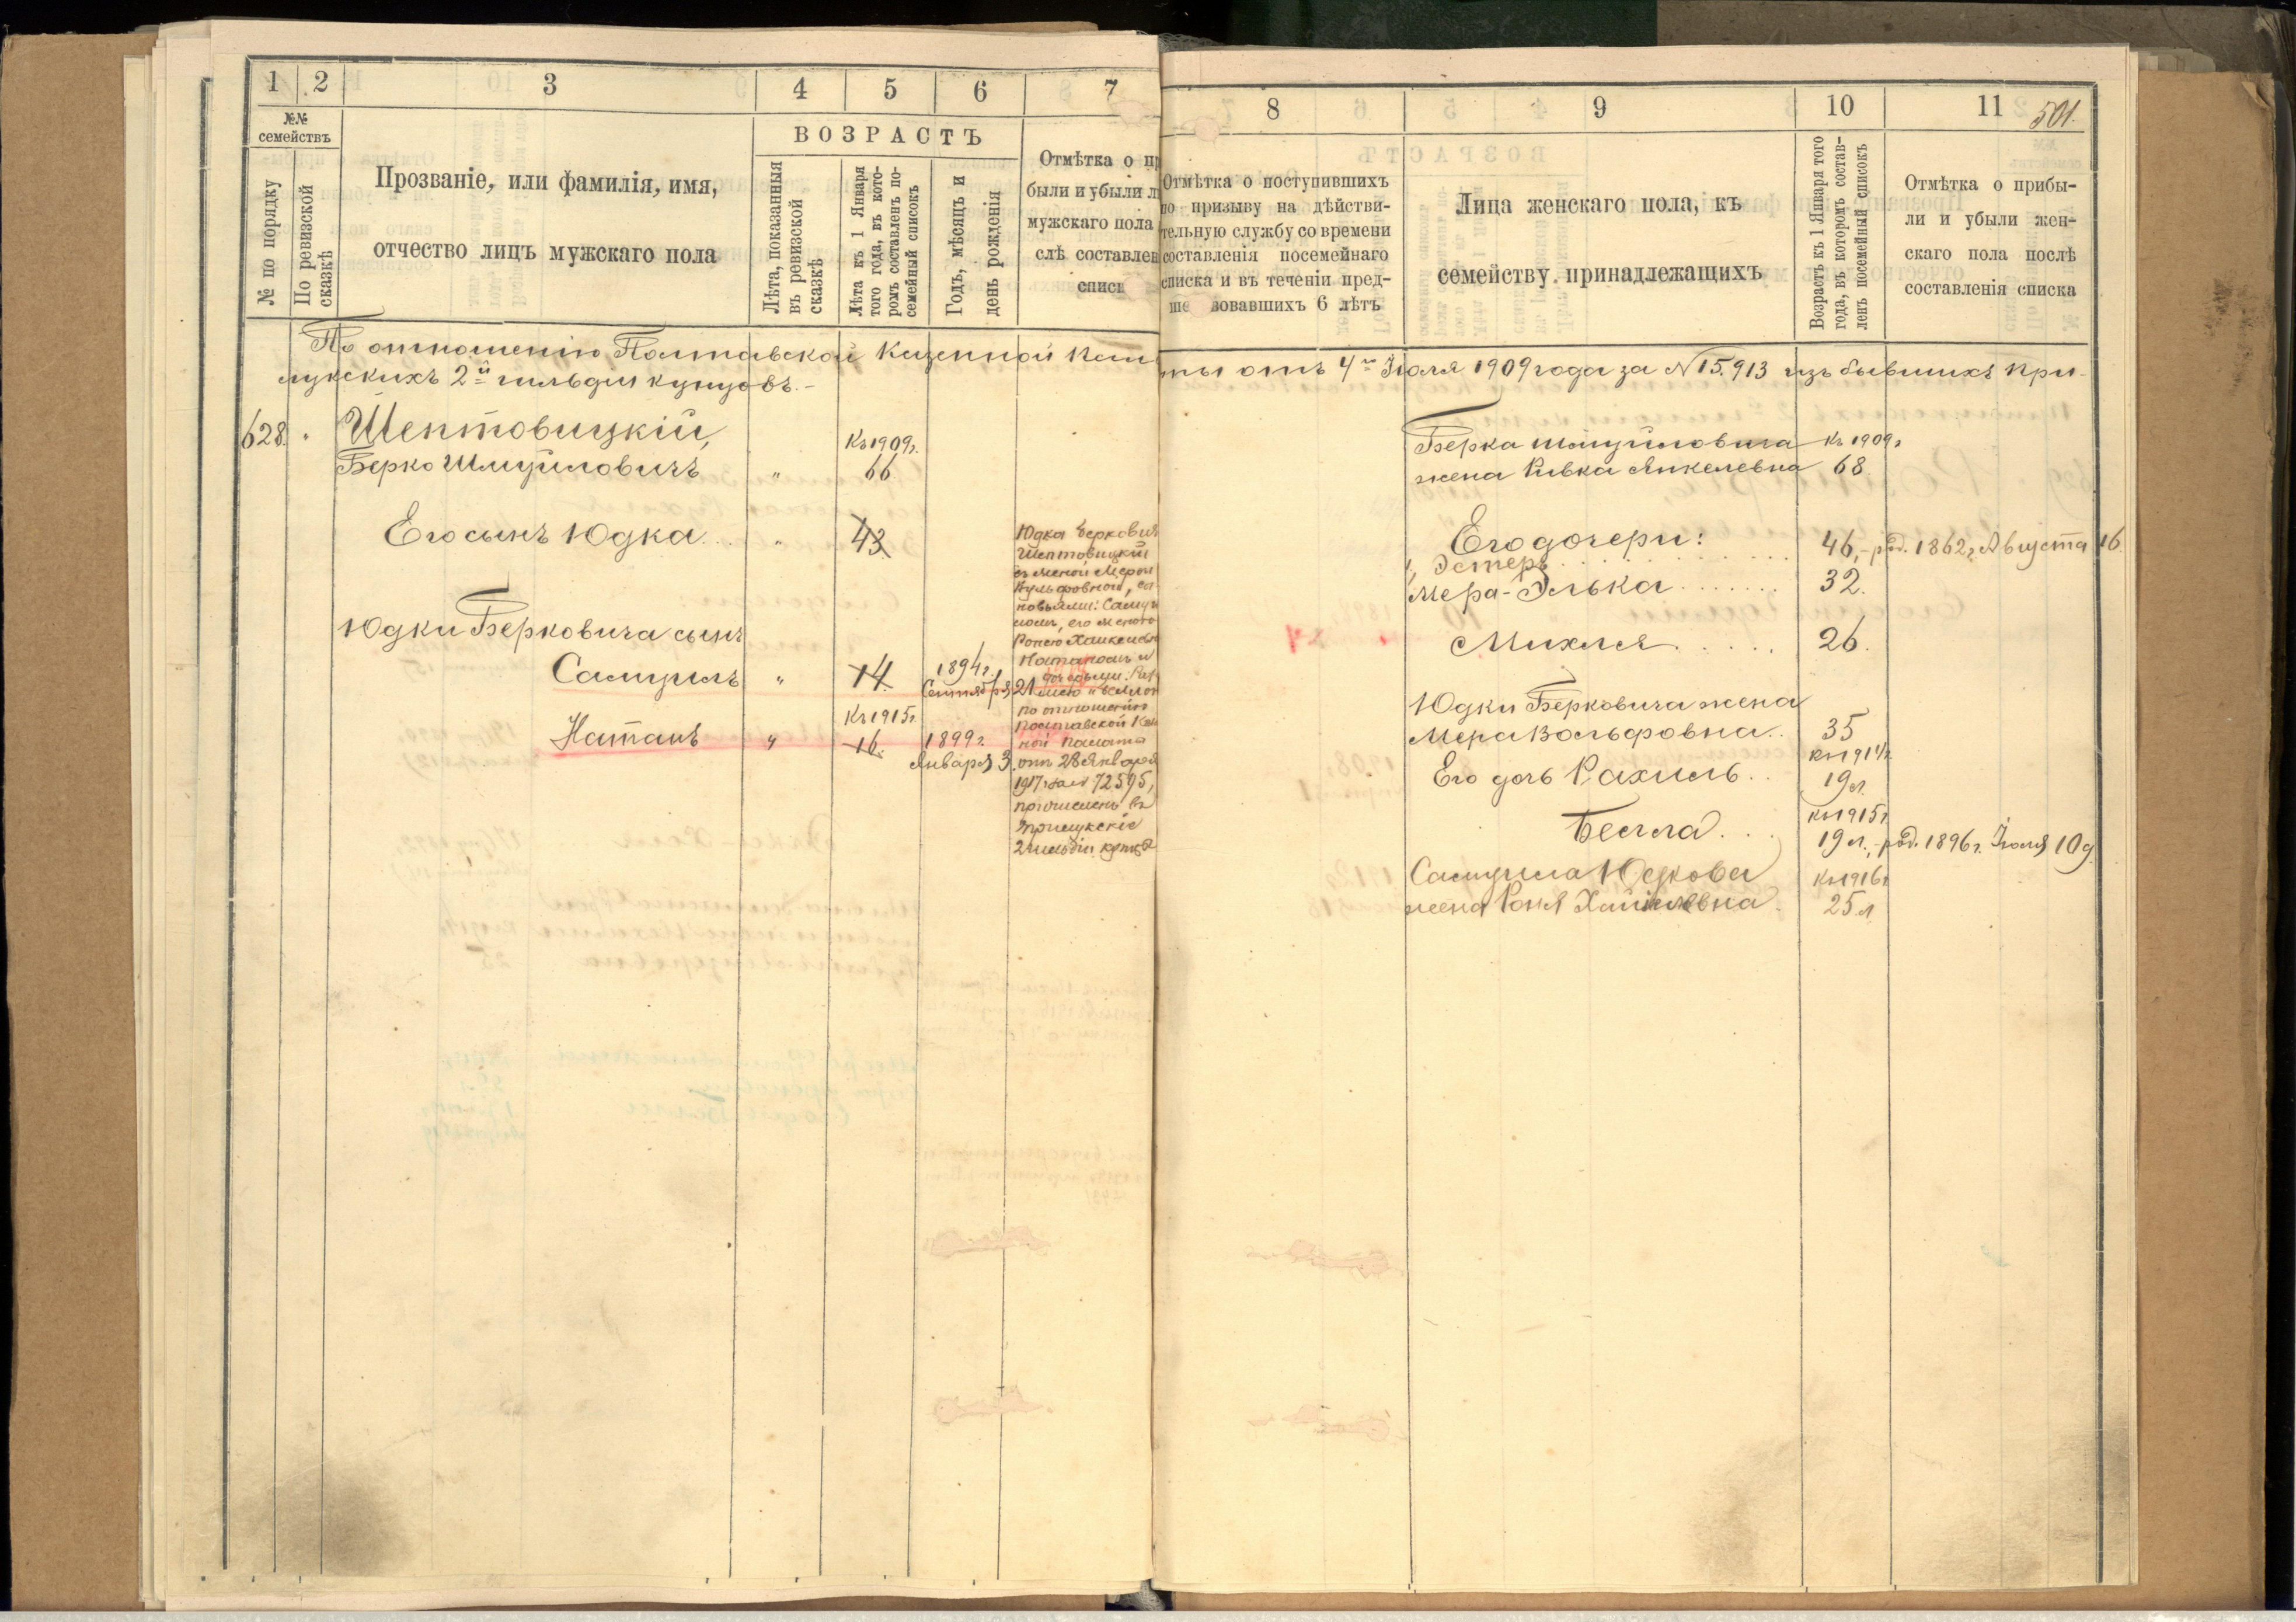 1 2 3 4 5 6 7
№№ семействъ
№ по порядку
По ревизской сказкѣ
Прозваніе, или фамилія, имя,
отчество лицъ мужскаго пола
ВОЗРАСТЪ
Лѣта, показанныя
въ ревизской
сказкѣ
Лѣта къ 1 Января
того года, въ кото-
ромъ составленъ по-
семейный списокъ
Годъ, мѣсяцъ и
день рожденія
Отмѣтка о пр
были и убыли л
мужскаго пола
слѣ составлен
списк
По отношенію Полтавской Казенной Пала
лукскихъ 2й гильдіи купцовъ.-
628. "
Шептовицкій,
Берко Шмуйловичъ "
Къ 1909г.
66
Его сынъ Юдка... " 43
Юдки Берковича сынъ
Самуилъ " 14 1894г.
Сентября 21
Къ 1915г.
Натанъ " 16. 1899г.
Января 3.
Юдка Беркович
Шептовицкій
съ женой Мерой
Вульфовной, сы
новьями: Самуи
ломъ, его женою
Ронею
Натаномъ и
дочерьми:
по отношенію
Полтавской Каз
ной Палаты
отъ 28 Января
1917 за № 72595,
причисленъ въ
Прилукскіе
2 гильдіи купцы
8 9 10 11
501.
Отмѣтка о поступившихъ
по призыву на дѣйстви-
тельную службу со времени
составленія посемейнаго
списка и въ теченіи пред-
ше вовавшихъ 6 лѣтъ
Лица женскаго пола, къ
семейству принадлежащихъ
Возрастъ къ 1 Января того
года, въ которомъ состав-
ленъ посемейный списокъ
Отмѣтка о прибы-
ли и убыли жен-
скаго пола послѣ
составленія списка
ты отъ 4го Іюля 1909 года за № 15.913 изъ бывшихъ При-
Берка Шмуйловича Къ 1909г
жена Ривка Янкелевна 68.
Его дочери:
Эстеръ 46,- род. 1862г. Августа 16.
Мера-Элька....... 32.
Михля..... 26.
Юдки Берковича жена
Мера Вольфовна.. 35
Къ 1914г.
Его дочь Рахиль.. 19л.
Къ 1915г
Бейла... 19л.,- род. 1896г. Іюля 10д.
Самуила Юдкова Къ 1916г
жена Роня Хаимовна 25л